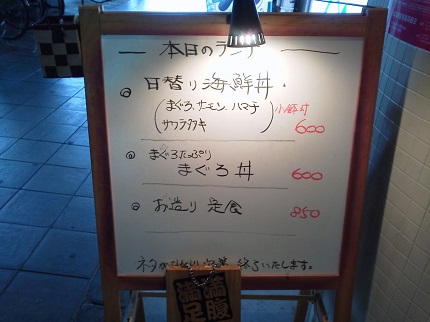 本日のランチ
◎ 日替り海鮮丼
(まぐろ、サーモン、ハマチ 小鉢付
サワラタタキ) 600
◎ まぐろたっぷり
まぐろ丼 600
◎ お造り定食 850
終了いたします。
満腹
満足